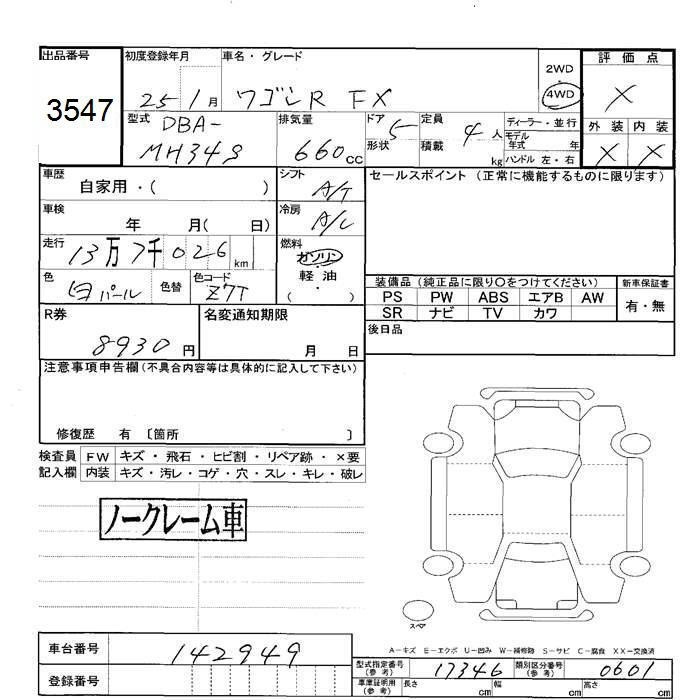 出品番号 初度登録年月 車名・グレード 2WD 評価点
3547 25 1月 ワゴンR FX 4WD X
型式 DBA-MH34S 排気量 660cc ドア 5 形状 定員 4人 積載 kg ディーラー・並行 モデル年式 年 ハンドル 左・右 外装 内装
X X
車歴 自家用・( ) シフト A/T セールスポイント(正常に機能するものに限ります)
車検 年 月( 日) 冷房 A/C
走行 13万7千026km 燃料 ガソリン・軽油・( )
色 白パール 色替 色コード Z7T
装備品(純正品に限り○をつけてください) 新車保証書
PS PW ABS エアB AW 有・無
SR ナビ TV カワ
R券 8930円 名変通知期限 月 日 後日品
注意事項申告欄(不具合内容等は具体的に記入して下さい)
修復歴 有 〔箇所 〕
検査員 FW キズ・飛石・ヒビ割・リペア跡・×要
記入欄 内装 キズ・汚レ・コゲ・穴・スレ・キレ・破レ
ノークレーム車
スペア
A-キズ E-エクボ U-凹み W-補修跡 S-サビ C-腐食 XX-交換済
車台番号 142949
登録番号
型式指定番号(参考) 17346 類別区分番号(参考) 0601
車庫証明用(参考) 長さ cm 幅 cm 高さ cm